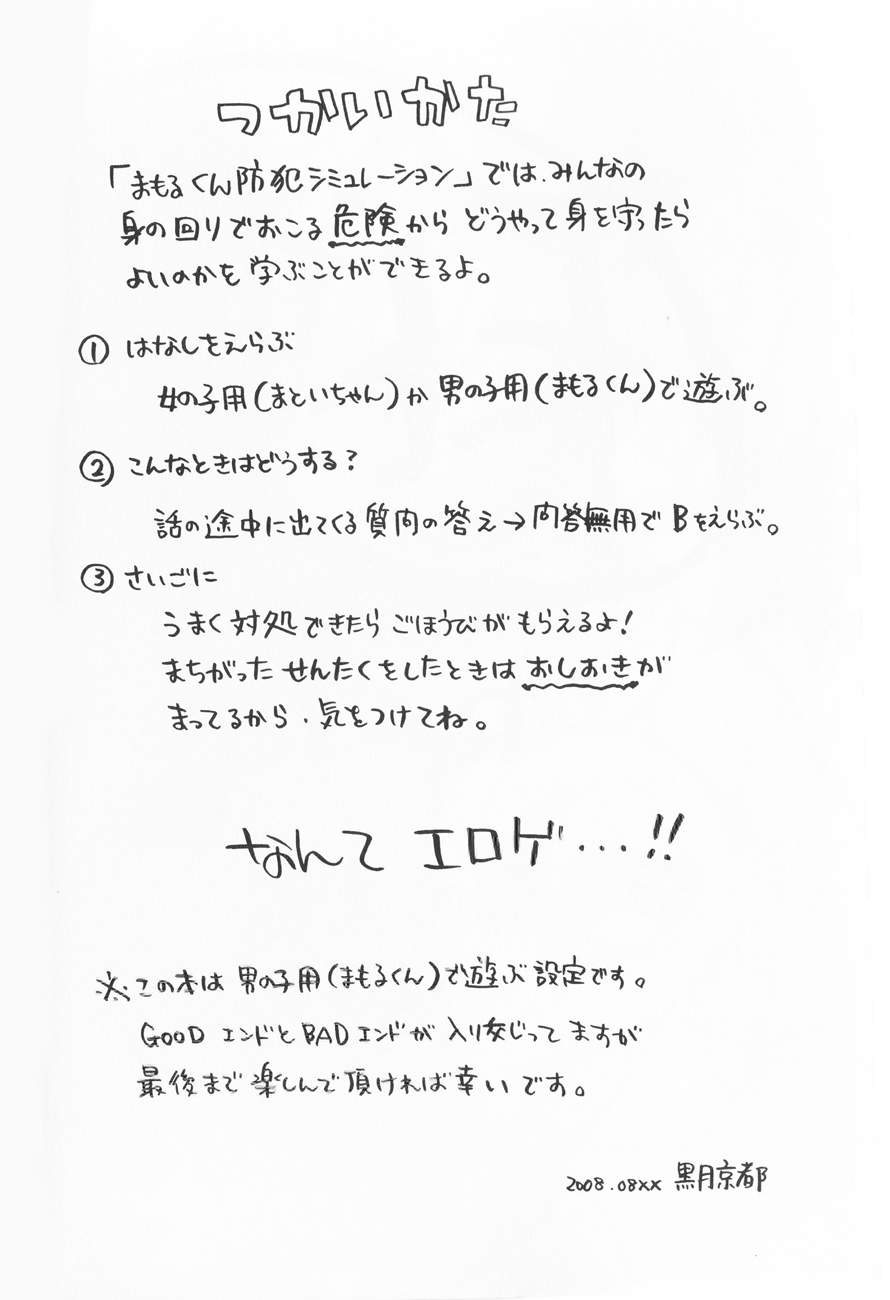 つかいかた
「まもるくん防犯シミュレーション」では、みんなの
身の回りでおこる危険から どうやって身を守ったら
よいのかを学ぶことができるよ。
① はなしをえらぶ
女の子用(まといちゃん)か 男の子用(まもるくん)で遊ぶ。
② こんなときはどうする?
話の途中に出てくる質問の答え→問答無用でBをえらぶ。
③ さいごに
うまく対処できたらごほうびがもらえるよ!
まちがったせんたくをしたときはおしおきが
まってるから、気をつけてね。
なんてエロゲ…!!
※この本は男の子用(まもるくん)で遊ぶ設定です。
GOODエンドとBADエンドが入り交じってますが
最後まで楽しんで頂ければ幸いです。
2008.08xx 黒月京都